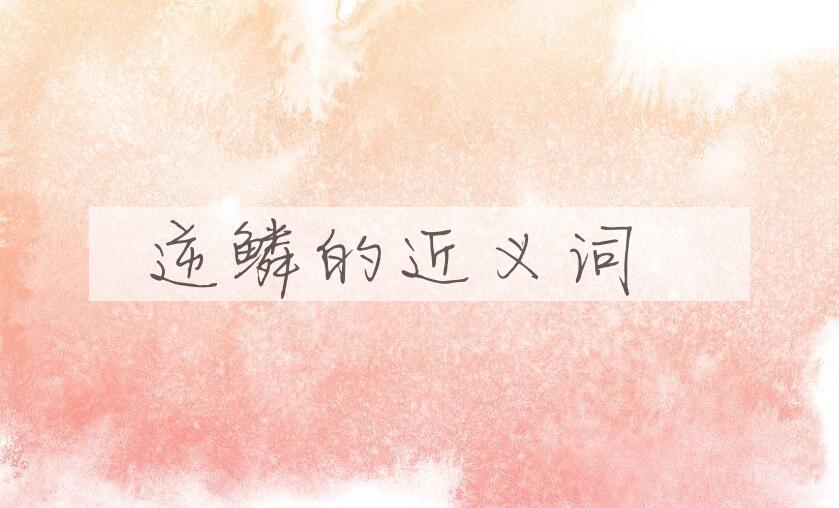 逆鳞的近义词